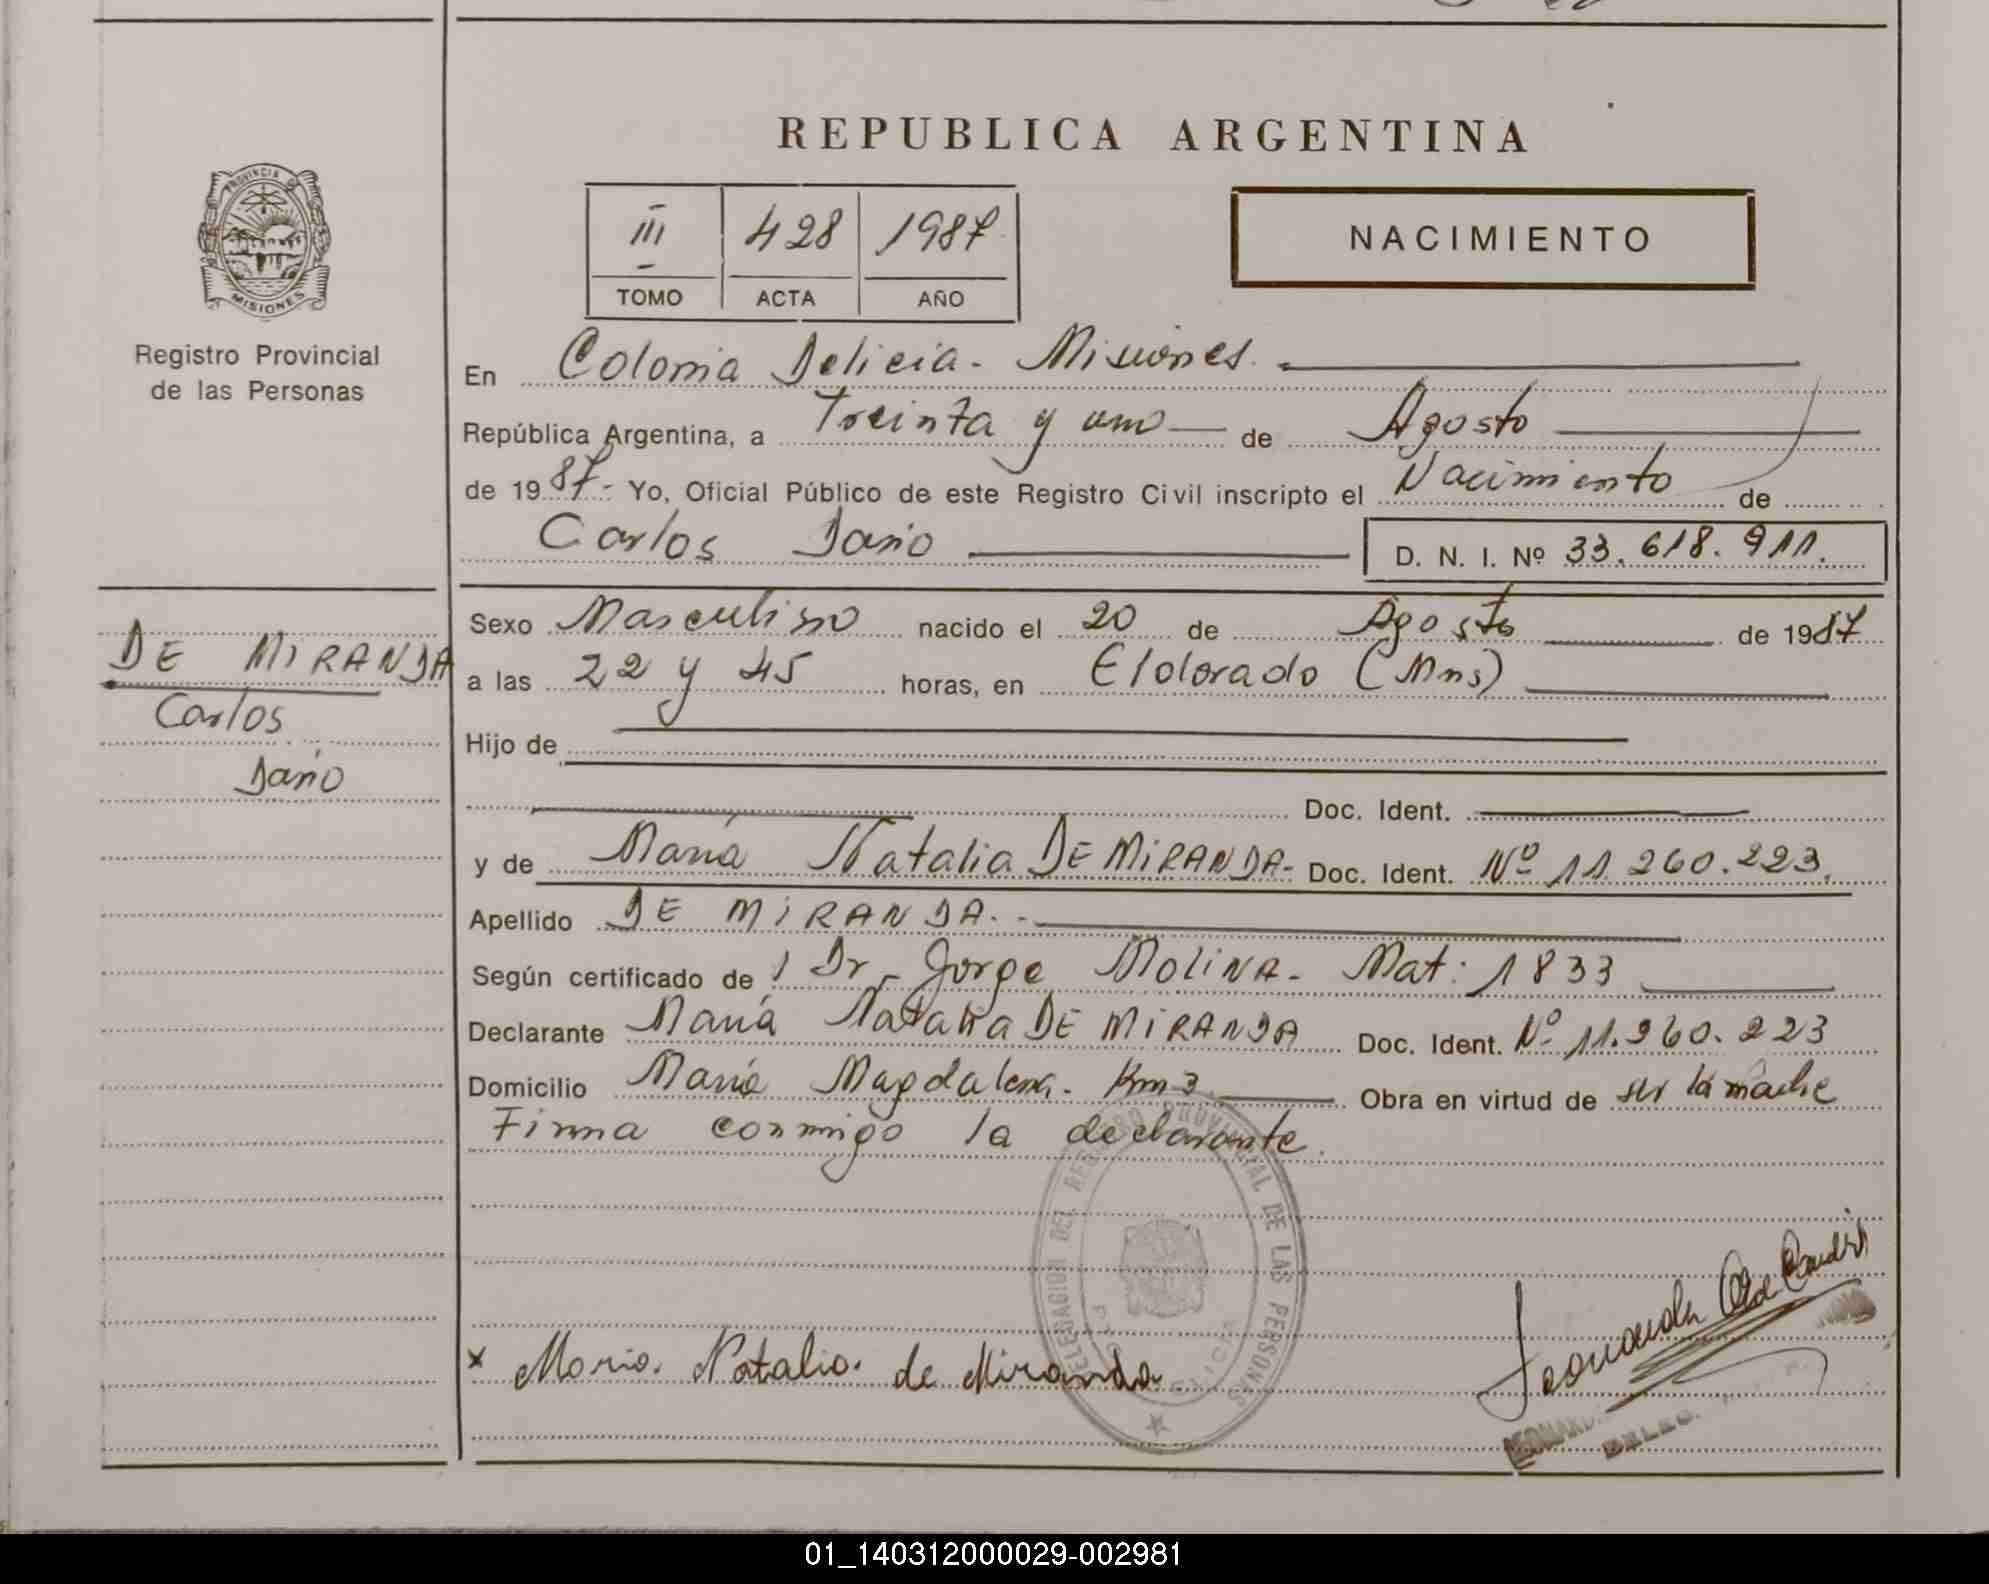 REPUBLICA ARGENTINA
PROVINCIA DE
MISIONES
Registro Provincial
de las Personas
III 428 1987
TOMO ACTA AÑO
NACIMIENTO
En Colonia Delicia - Misiones.
República Argentina, a Treinta y uno de Agosto
de 1987.- Yo, Oficial Público de este Registro Civil inscripto el Nacimiento de
Carlos Darío D. N. I. Nº 33.618.911.
DE MIRANDA
Carlos
Darío
Sexo Masculino nacido el 20 de Agosto de 1987
a las 22 y 45 horas, en Eldorado (Mns)
Hijo de
Doc. Ident.
y de María Natalia DE MIRANDA- Doc. Ident. Nº 11.260.223.
Apellido DE MIRANDA.-
Según certificado de Dr. Jorge MOLINA- Mat: 1833
Declarante María Natalia DE MIRANDA Doc. Ident. Nº 11.260.223
Domicilio María Magdalena- Km 3 Obra en virtud de ser la madre
Firma conmigo la declarante.
DELEGACION DEL REGISTRO PROVINCIAL DE LAS PERSONAS
DELICIA
x Maria Natalia de Miranda
01_140312000029-002981